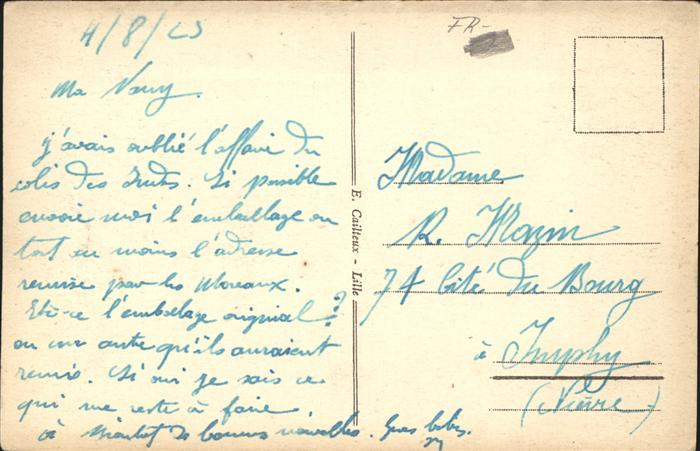 4/8/25
FR-
Ma Nany.
j'avais oublié l'affaire du
colis des Indes. Si possible
envoie moi l'emballage ou
tout au moins l'adresse
remise par les Moreaux.
Est-ce l'emballage original?
ou un autre qu'ils auraient
remis. Si oui je sais ce
qui me reste à faire
à bientôt de bonnes nouvelles. Gros bebes.
E. Cailleux - Lille
Madame
R. Mazin
74 Cité du Bourg
à Imphy
(Nièvre)